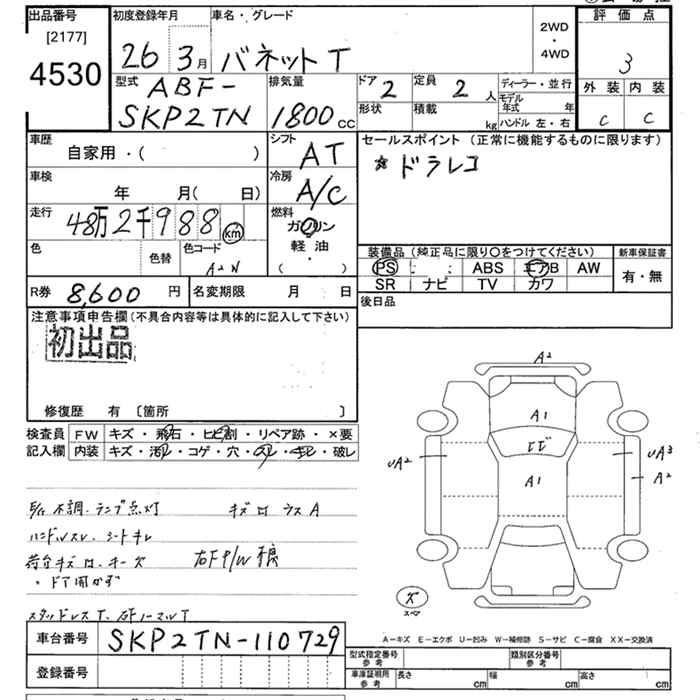 出品番号 初度登録年月 車名・グレード 評価点
[2177]
4530
26年3月 バネットT 2WD・4WD 3
型式 ABF-SKP2TN 排気量 1800cc ドア 2 定員 2人 ディーラー・並行
形状 積載 kg モデル年式 年 ハンドル 左・右
外装 C 内装 C
車歴 自家用・( )
シフト AT
セールスポイント (正常に機能するものに限ります)
☆ドラレコ
車検 年 月( 日)
冷房 A/C
走行 48万2千988km
燃料 ガソリン 軽油・( )
色 色替 色コード
装備品(純正品に限り〇をつけてください) 新車保証書
PS ABS エアB AW 有・無
SR ナビ TV カワ
R券 8,600円 名変期限 月 日
後日品
注意事項申告欄(不具合内容等は具体的に記入して下さい)
初出品
修復歴 有 〔箇所 〕
検査員 FW キズ・飛石・ヒビ割・リペア跡・×要
記入欄 内装 キズ・汚レ・コゲ・穴・スレ・キレ・破レ
A2
A1
ヒビ
UA2 UA3
A1 A2
不調・ランプ点灯
ハンドルスレ、シートキレ
スペア
スタッドレスT
A-キズ E-エクボ U-凹み W-補修跡 S-サビ C-腐食 XX-交換済
車台番号 SKP2TN-110729
登録番号
型式指定番号 参考 類別区分番号 参考
車庫証明用 参考 長さ cm 幅 cm 高さ cm